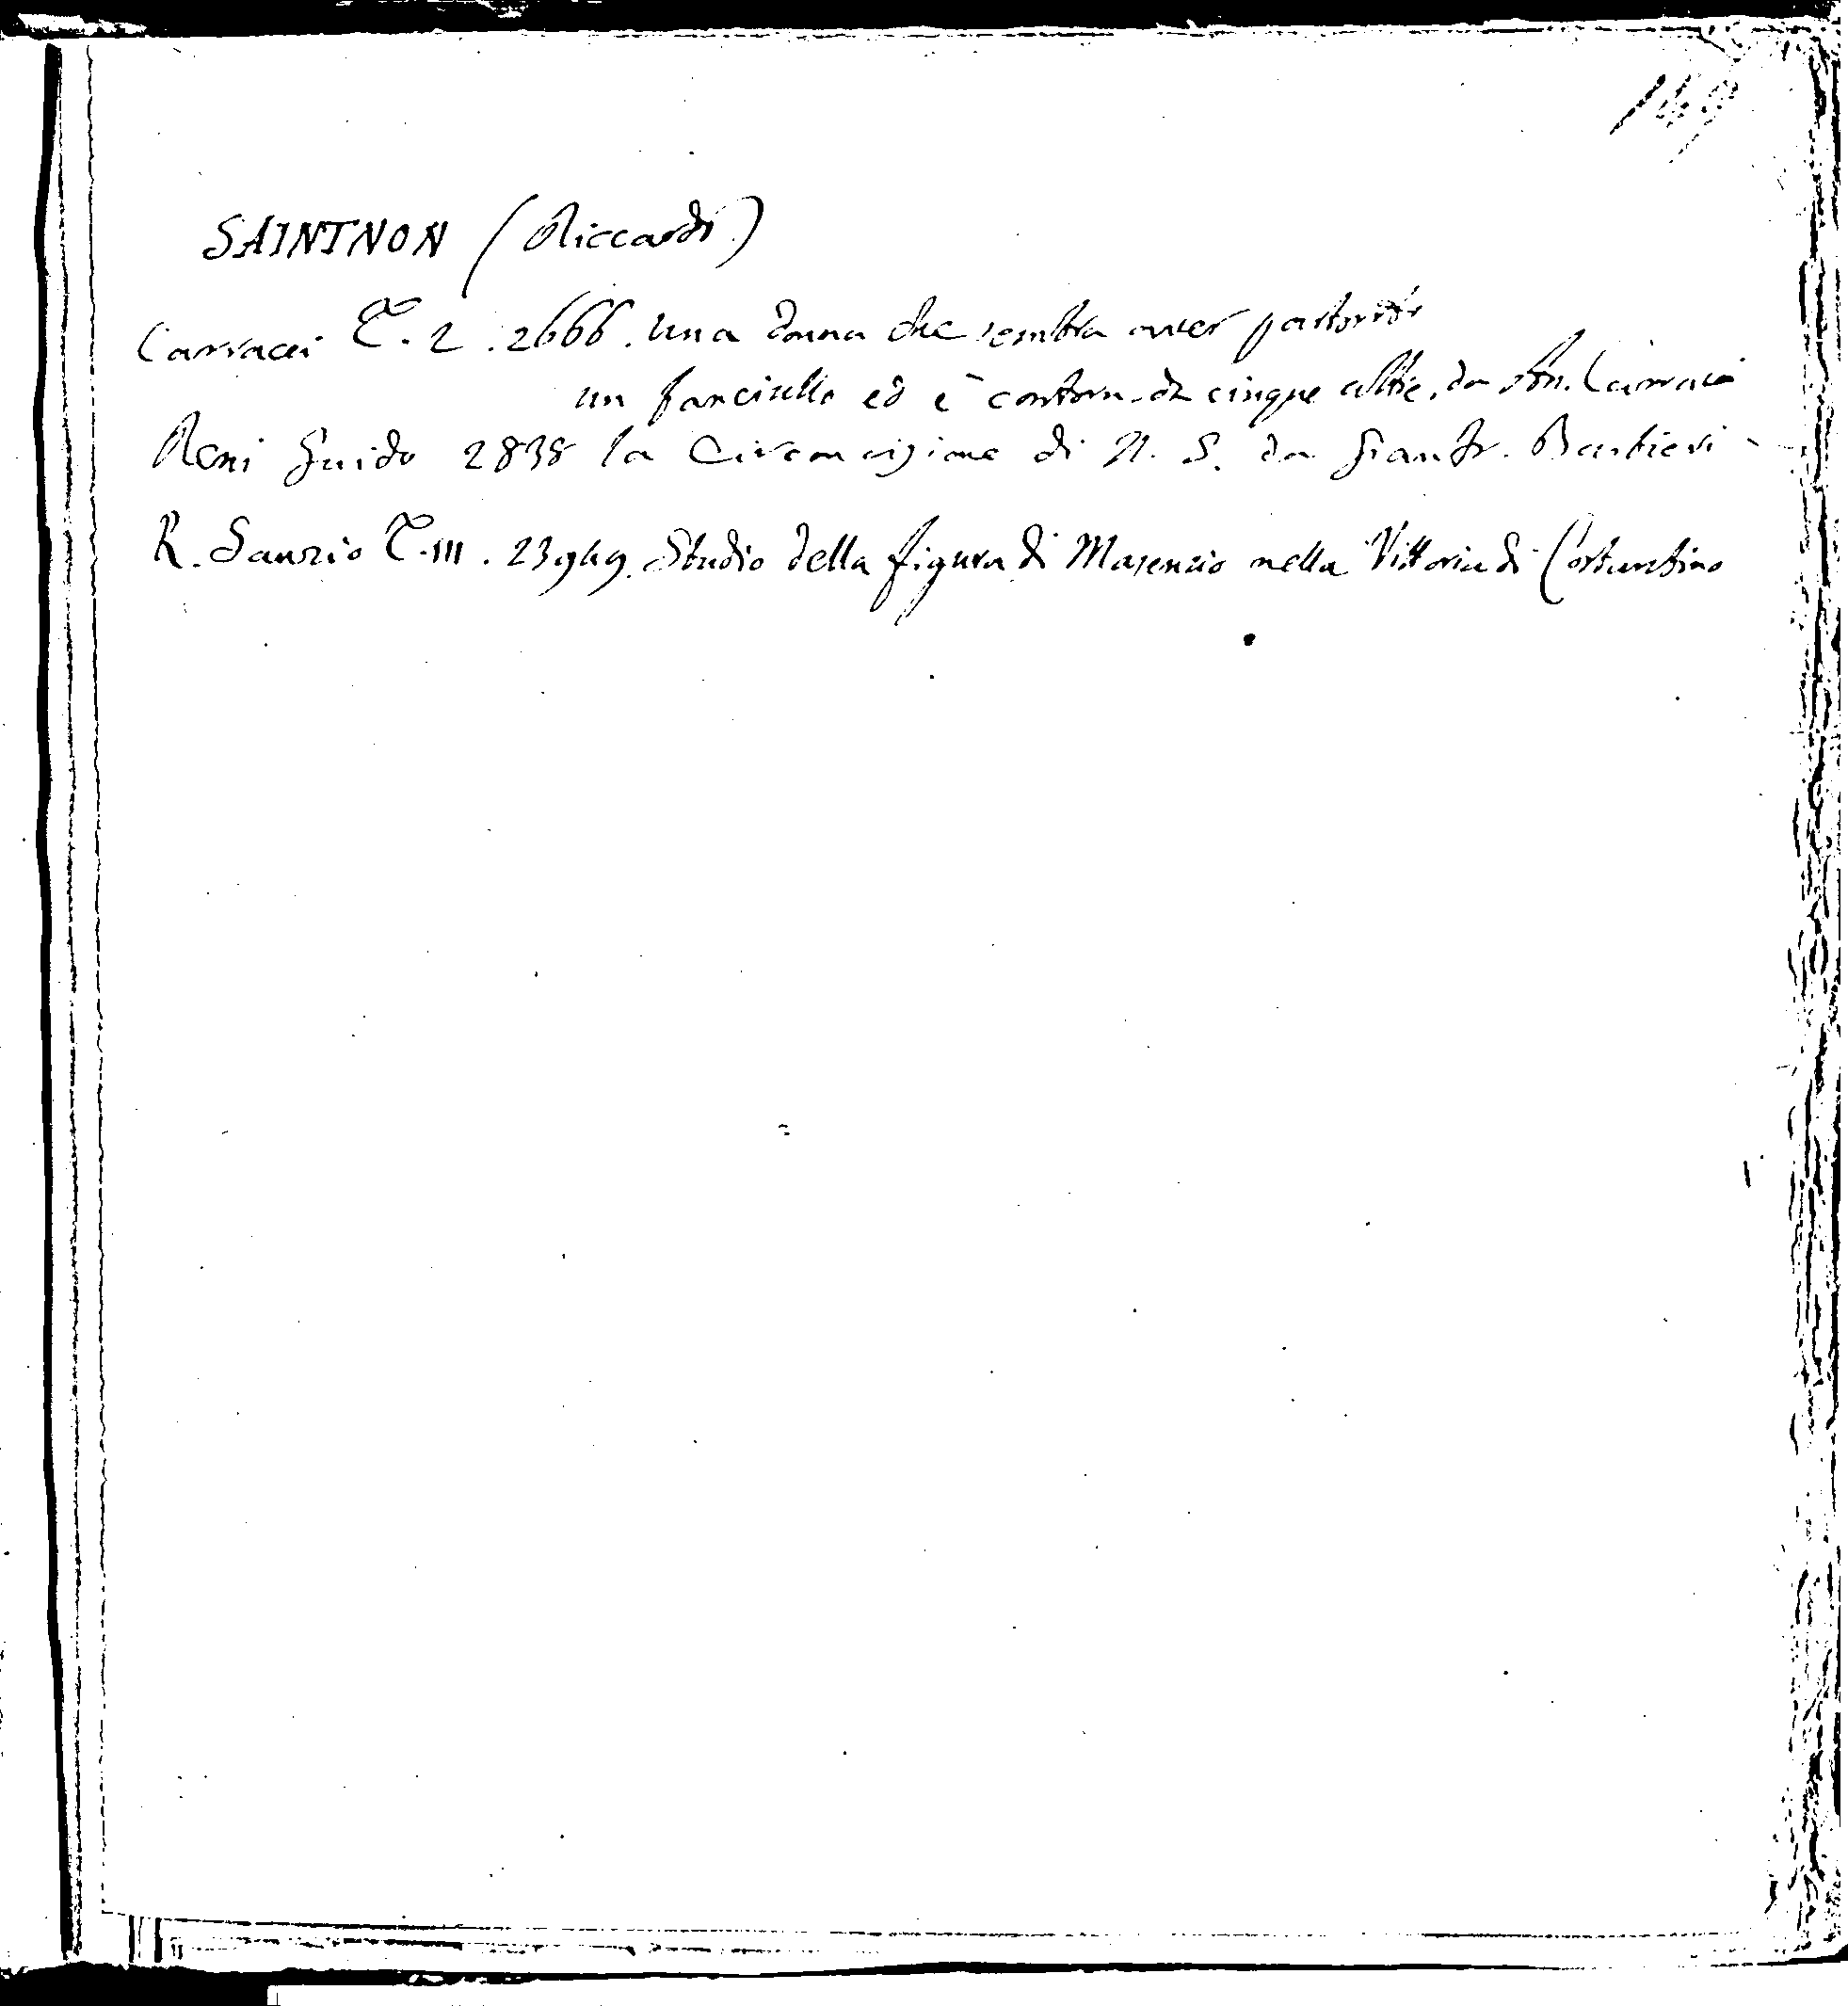 149
SAINTNON (Riccardo)
Carracci T. 2. 2666. una donna che sembra aver partorito
un fanciullo ed è contorn. da cinque altre. da Ann. Carracci
Reni Guido 2838 la Circoncisione di N. S. da Gianfr. Barbieri
R. Sanzio T. III. 23949. Studio della figura di Masenzio nella Vittoria di Costantino